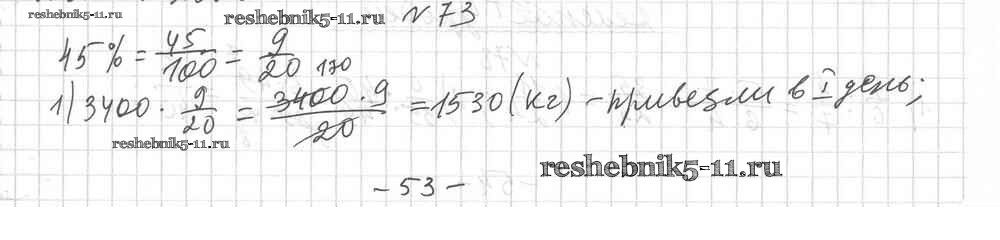 reshebnik5-11.ru
reshebnik5-11.ru
№73
45% = 45/100 = 9/20
1) 3400 · 9/20 = 3400 · 9/20 = 1530 (кг) – привезли в I день;
170
reshebnik5-11.ru
reshebnik5-11.ru
– 53 –